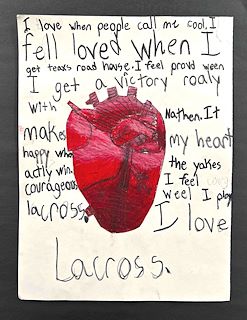 I love when people call me cool. I
fell loved when I
get texas road house. I feel proud ween
I get a victory roaly
with Nathen. It
makes my heart
happy who the yakes
actly win. I feel
courageous weel I play
lacross. I love
Lacross.